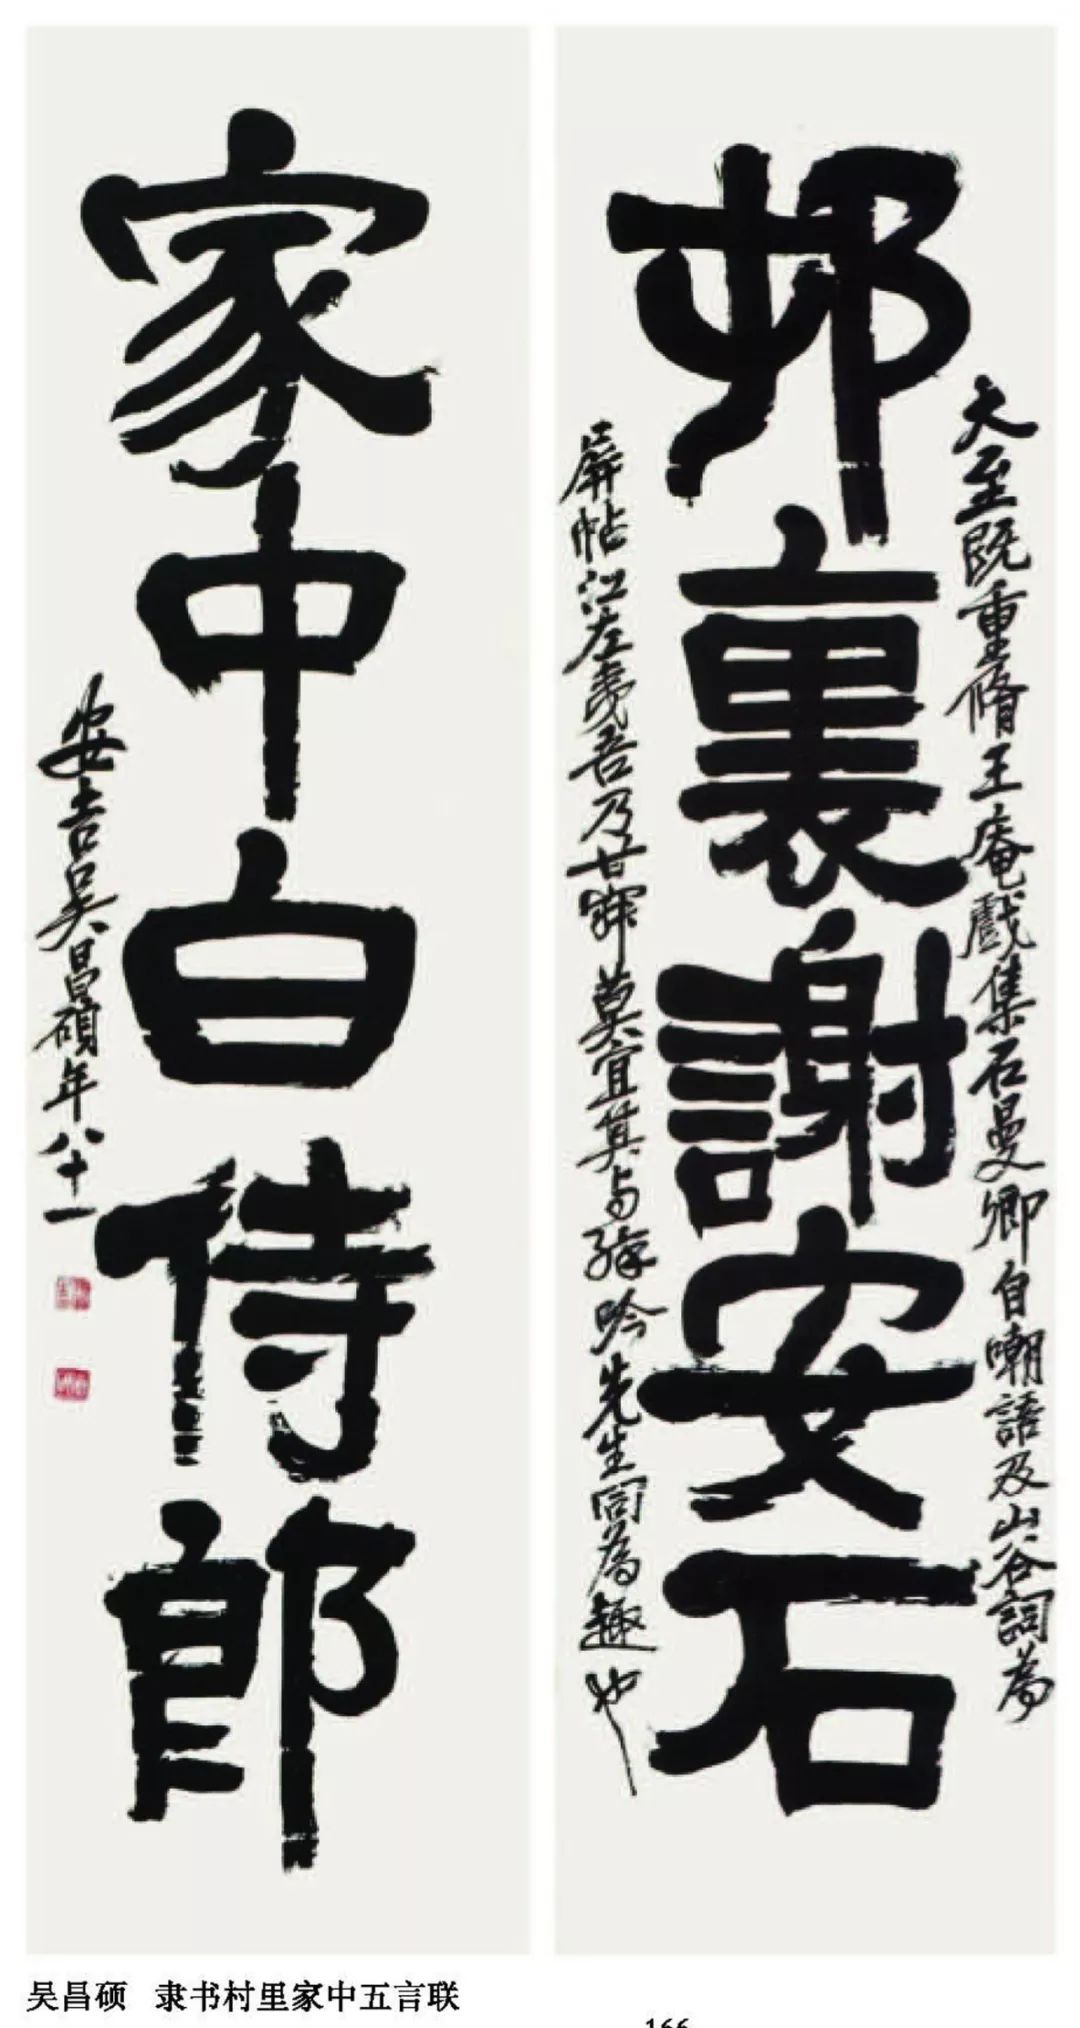 邨裏謝安石
大至既重脩王庵戲集石曼卿自嘲語及山谷詞為
屏帖江左夷吾乃甘寢莫宜其与 吟先生同為趣也
家中白侍郎
安吉吴昌碩年八十一
吴昌硕 隶书村里家中五言联
166